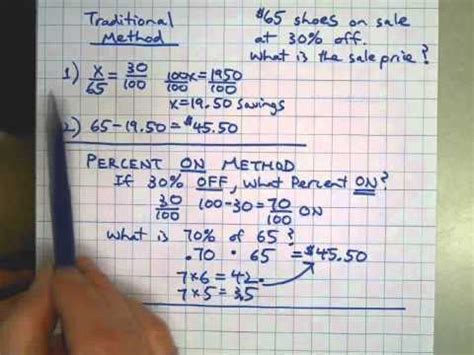 Traditional
Method
$65 shoes on sale
at 30% off.
What is the sale price?
1) x/65 = 30/100 100x/100 = 1950/100
x=19.50 savings
2) 65-19.50=$45.50
PERCENT ON METHOD
If 30% OFF, what Percent ON?
30/100 100-30=70/100 ON
What is 70% of 65?
.70 · 65 = $45.50
7×6=42.
7×5=3.5